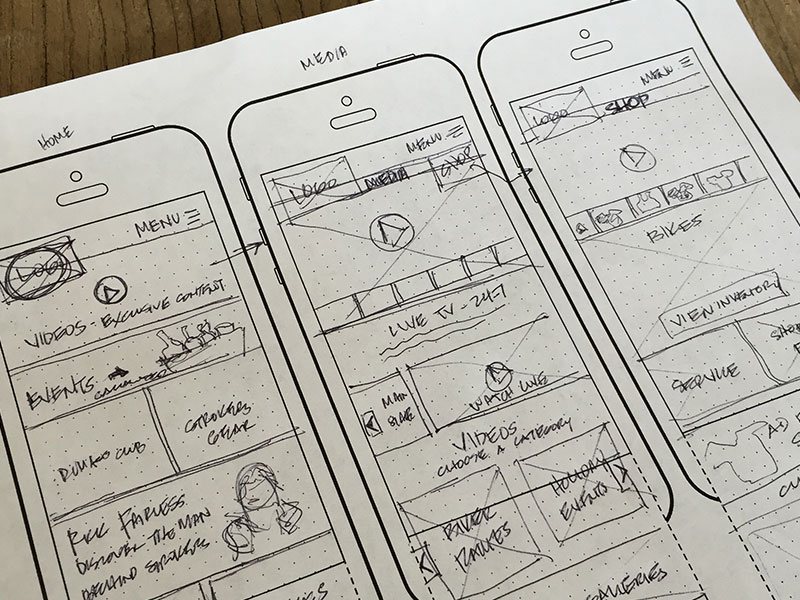 HOME
MENU
LOGO
VIDEOS - EXCLUSIVE CONTENT
EVENTS
CALENDAR
STROKERS
GEAR
RICK FAIRLESS
DISCOVER THE MAN
BEHIND STROKERS
MEDIA
MENU
LOGO
MEDIA
SHOP
LIVE TV - 24-7
MAIN
STAGE
WATCH LIVE
VIDEOS
CHOOSE A CATEGORY
BIKER
RALLIES
HOLIDAY
EVENTS
GALLERIES
MENU
LOGO
SHOP
BIKES
VIEW INVENTORY
SERVICE
AD